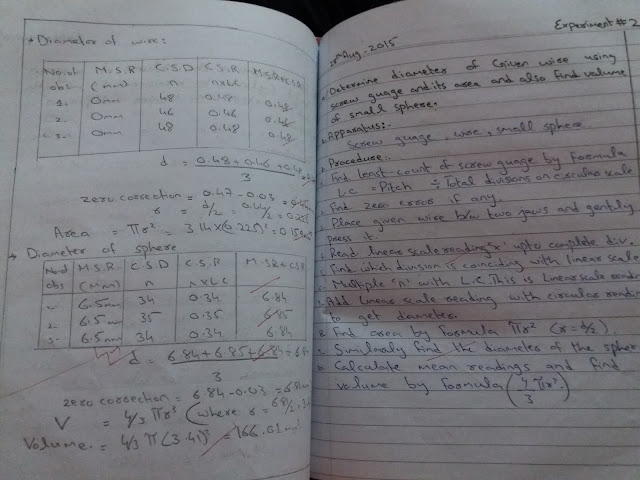 Diameter of wire:
No. of M.S.R C.S.D C.S.R M.S.R+C.S.R
obs (mm) n n×L.C
1. 0mm 48 0.48 0.48
2. 0mm 46 0.46 0.46
3. 0mm 48 0.48 0.48
d = 0.48+0.46+0.48
3
zero correction = 0.47 - 0.03 =
r = d/2 = 0.44/2 =
Area = πr² = 3.14×(0.225)² =
Diameter of sphere
No.of M.S.R C.S.D C.S.R M.S.R+C.S.R
obs (mm) n n×LC
1- 6.5mm 34 0.34 6.84
2- 6.5mm 35 0.35 6.85
3- 6.5mm 34 0.34 6.84
d = 6.84+6.85+6.84
3
zero correction = 6.84-0.03 = 6.81mm
V = 4/3 πr³ (where r =
Volume = 4/3 π(3.41)³ = 166.01
Experiment # 2
Aug, 2015
Determine diameter of Given wire using
screw guage and its area and also find volume
of small sphere.
Apparatus:-
Screw guage, wire, small sphere
Procedure:-
Find least count of screw guage by Formula
L.C = Pitch ÷ Total divisions on circular scale
Find zero error if any.
Place given wire b/w two jaws and gently
press it.
Read linear scale reading 'x' upto complete div.
Find which division is coinciding with linear scale
Multiple 'n' with L.C. This is linear scale read
Add linear scale reading with circular reading
to get diameter.
Find area by formula πr² (r=d/2)
Similarly find the diameter of the sphere
Calculate mean readings and find
volume by formula (4/3 πr³)